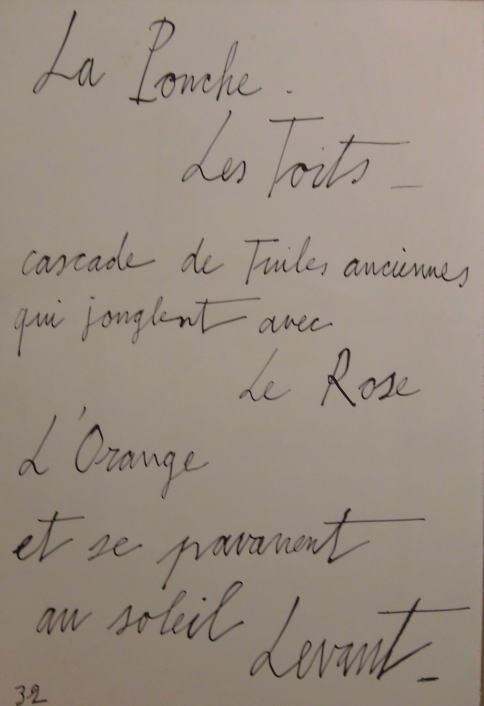 La Ponche.
Les Toits -
cascade de Tuiles anciennes
qui jonglent avec
Le Rose
L'Orange
et se pavanent
au soleil Levant -
32